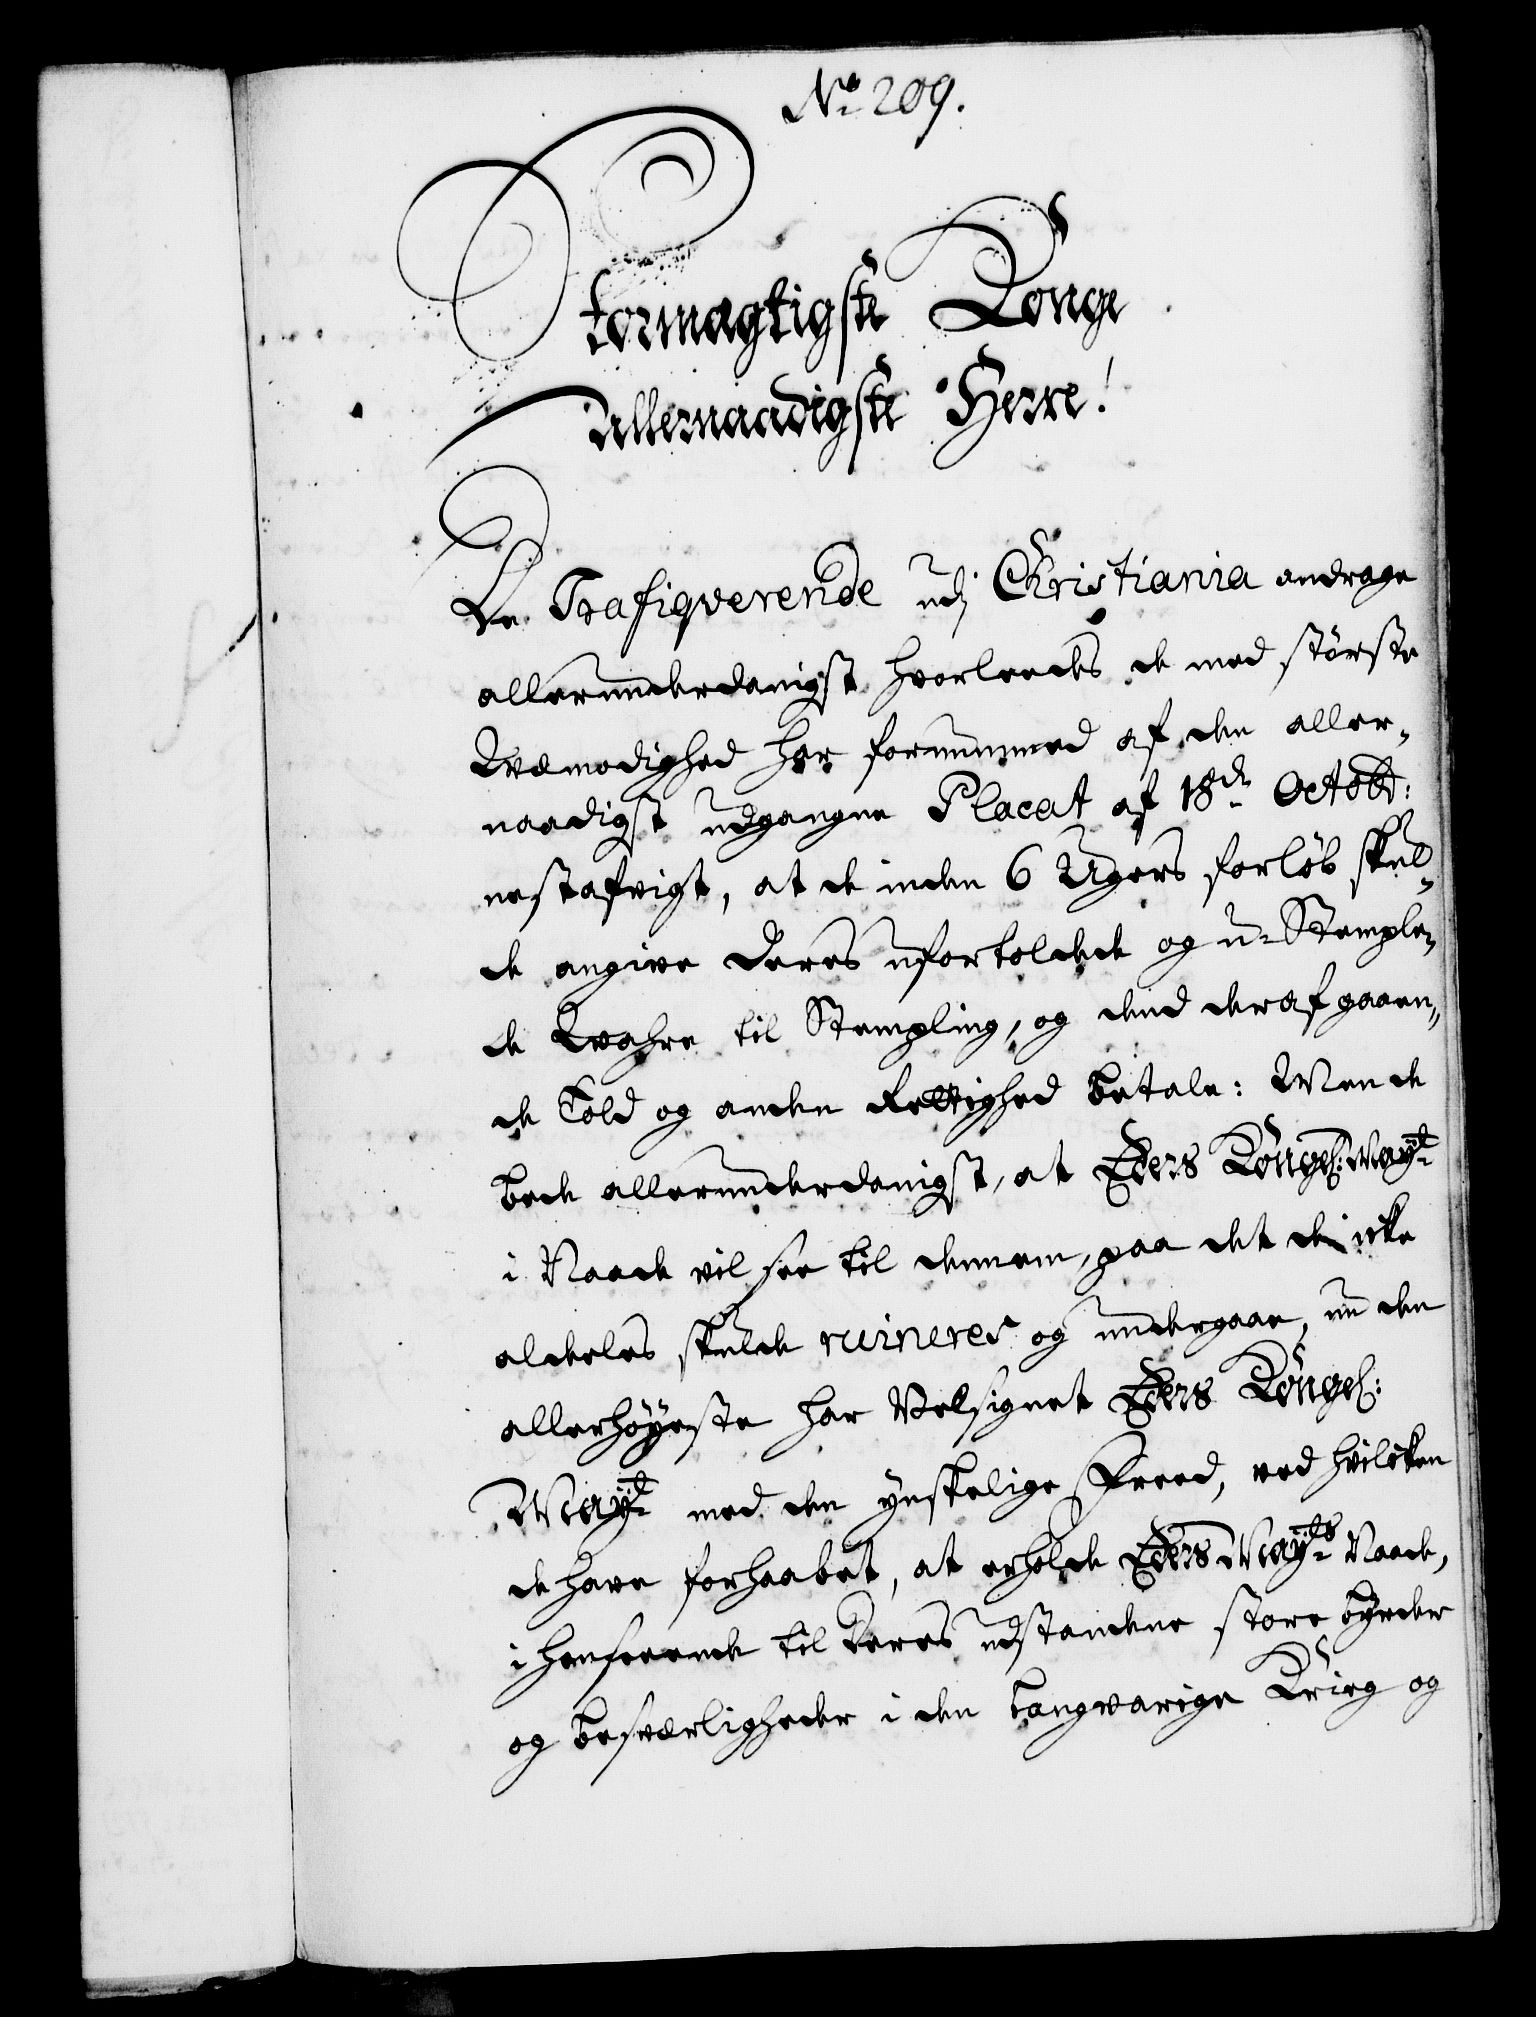 No 209.
Stormægtigste Konge
Allernaadigste Herre!
De Trafiqverende udj Christiania andrage
allerunderdanigst hvorleedes de med største
Wæmodighed har fornummed af den aller-
naadigst udgangne Placat af 18de Octobr:
nestafvigt, at de inden 6 Ugers forløb skul-
de angive deres ufortoldede og u-Stemple-
de Wahre til Stempling, og dend deraf gaaen-
de Told og anden Rettighed betale: Men de
bede allerunderdanigst, at Eders Kongel: Mayt
i Naade vil see til dennem, paa det de icke
aldeles skulde ruineres og undergaae, nu den
allerhøyeste har Velsignet Eders Kongel:
Mayt med den ynskelige Freed, ved hvilcken
de have forhaabet, at erholde Eders Mayts Naade,
i henseende til deres udstandene store byrder
og besværligheder i den langvarige Krieg og